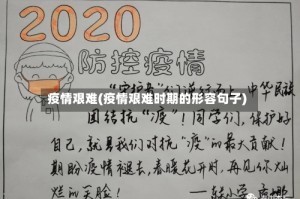 2020
防控疫情
"守护者"们逆行而上，中华民族
疫情艰难(疫情艰难时期的形容句子)
团结抗"疫"！同学们，保护好
自己，就是我们对抗"疫"的最大贡献！
期盼疫情褪去，春暖花开时，再见你灿
烂的笑脸！